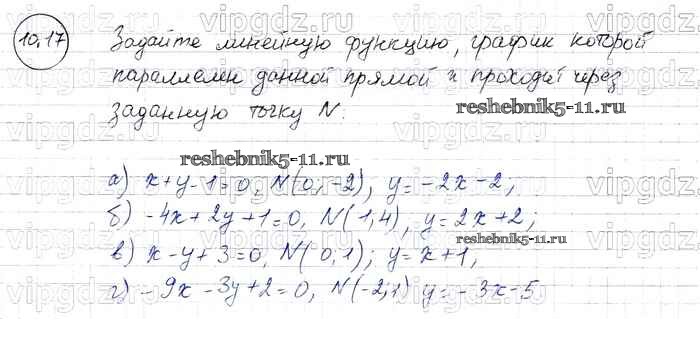 10.17 Задайте линейную функцию, график которой
параллелен данной прямой и проходит через
заданную точку N.
reshebnik5-11.ru
reshebnik5-11.ru
а) x+y-1=0, N(0;-2), y=-2x-2;
б) -4x+2y+1=0, N(1,4); y=2x+2;
reshebnik5-11.ru
в) x-y+3=0, N(0,1); y=x+1,
г) -9x-3y+2=0, N(-2,1) y=-3x-5
vipgdz.com